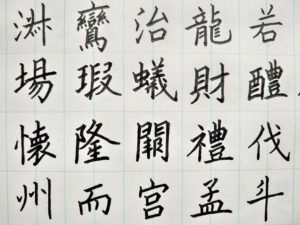 若醴伐斗
龍財禮孟
治蟻宮
鸞瑕隆而
場懷州